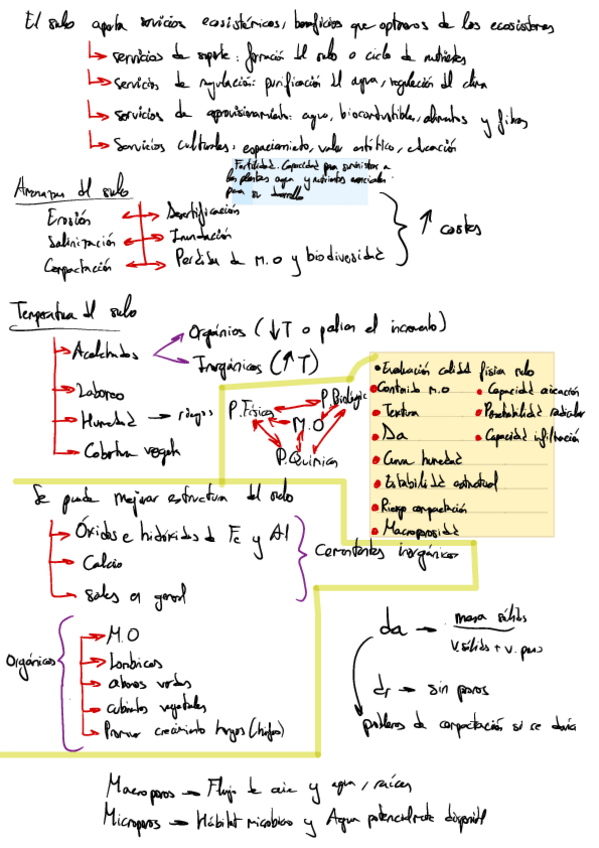 El suelo aporta servicios ecosistémicos, beneficios que obtenemos de los ecosistemas
servicios de soporte: formación del suelo o ciclo de nutrientes
servicios de regulación: purificación del agua, regulación del clima
servicios de aprovisionamiento: agua, biocombustibles, alimentos y fibras
Servicios culturales: esparcimiento, valor artístico, educación
Fertilidad: Capacidad para suministrar a
las plantas agua y nutrientes esenciales
para su desarrollo
Amenazas del suelo
Erosión
Desertificación
Salinización
Inundación
Compactación
Perdida de M.O y biodiversidad
↑ costes
Temperatura del suelo
Acolchados
Orgánicos (↓T o palian el incremento)
Inorgánicos (↑T)
Laboreo
Humedad → riegos
Cobertura vegetal
P.Física
P.Biológic
M.O
P.Química
• Evaluación calidad física suelo
• Contenido M.O
• Capacidad aireación
• Textura
• Penetrabilidad radicular
• Da
• Capacidad infiltración
• Curva humedad
• Estabilidad estructural
• Riesgo compactación
• Macroporosidad
Se puede mejorar estructura del suelo
Óxidos e hidróxidos de Fe y Al
Calcio
Sales en general
Cementantes inorgánicos
Orgánicos
M.O
Lombrices
abonos verdes
cubiertas vegetales
Promover crecimiento hongos (hifas)
da → masa sólidos
V.sólidos + v. poros
dr → sin poros
problemas de compactación si se desvía
Macroporos → Flujo de aire y agua, raíces
Microporos → Hábitat microbiano y Agua potencialmente disponible